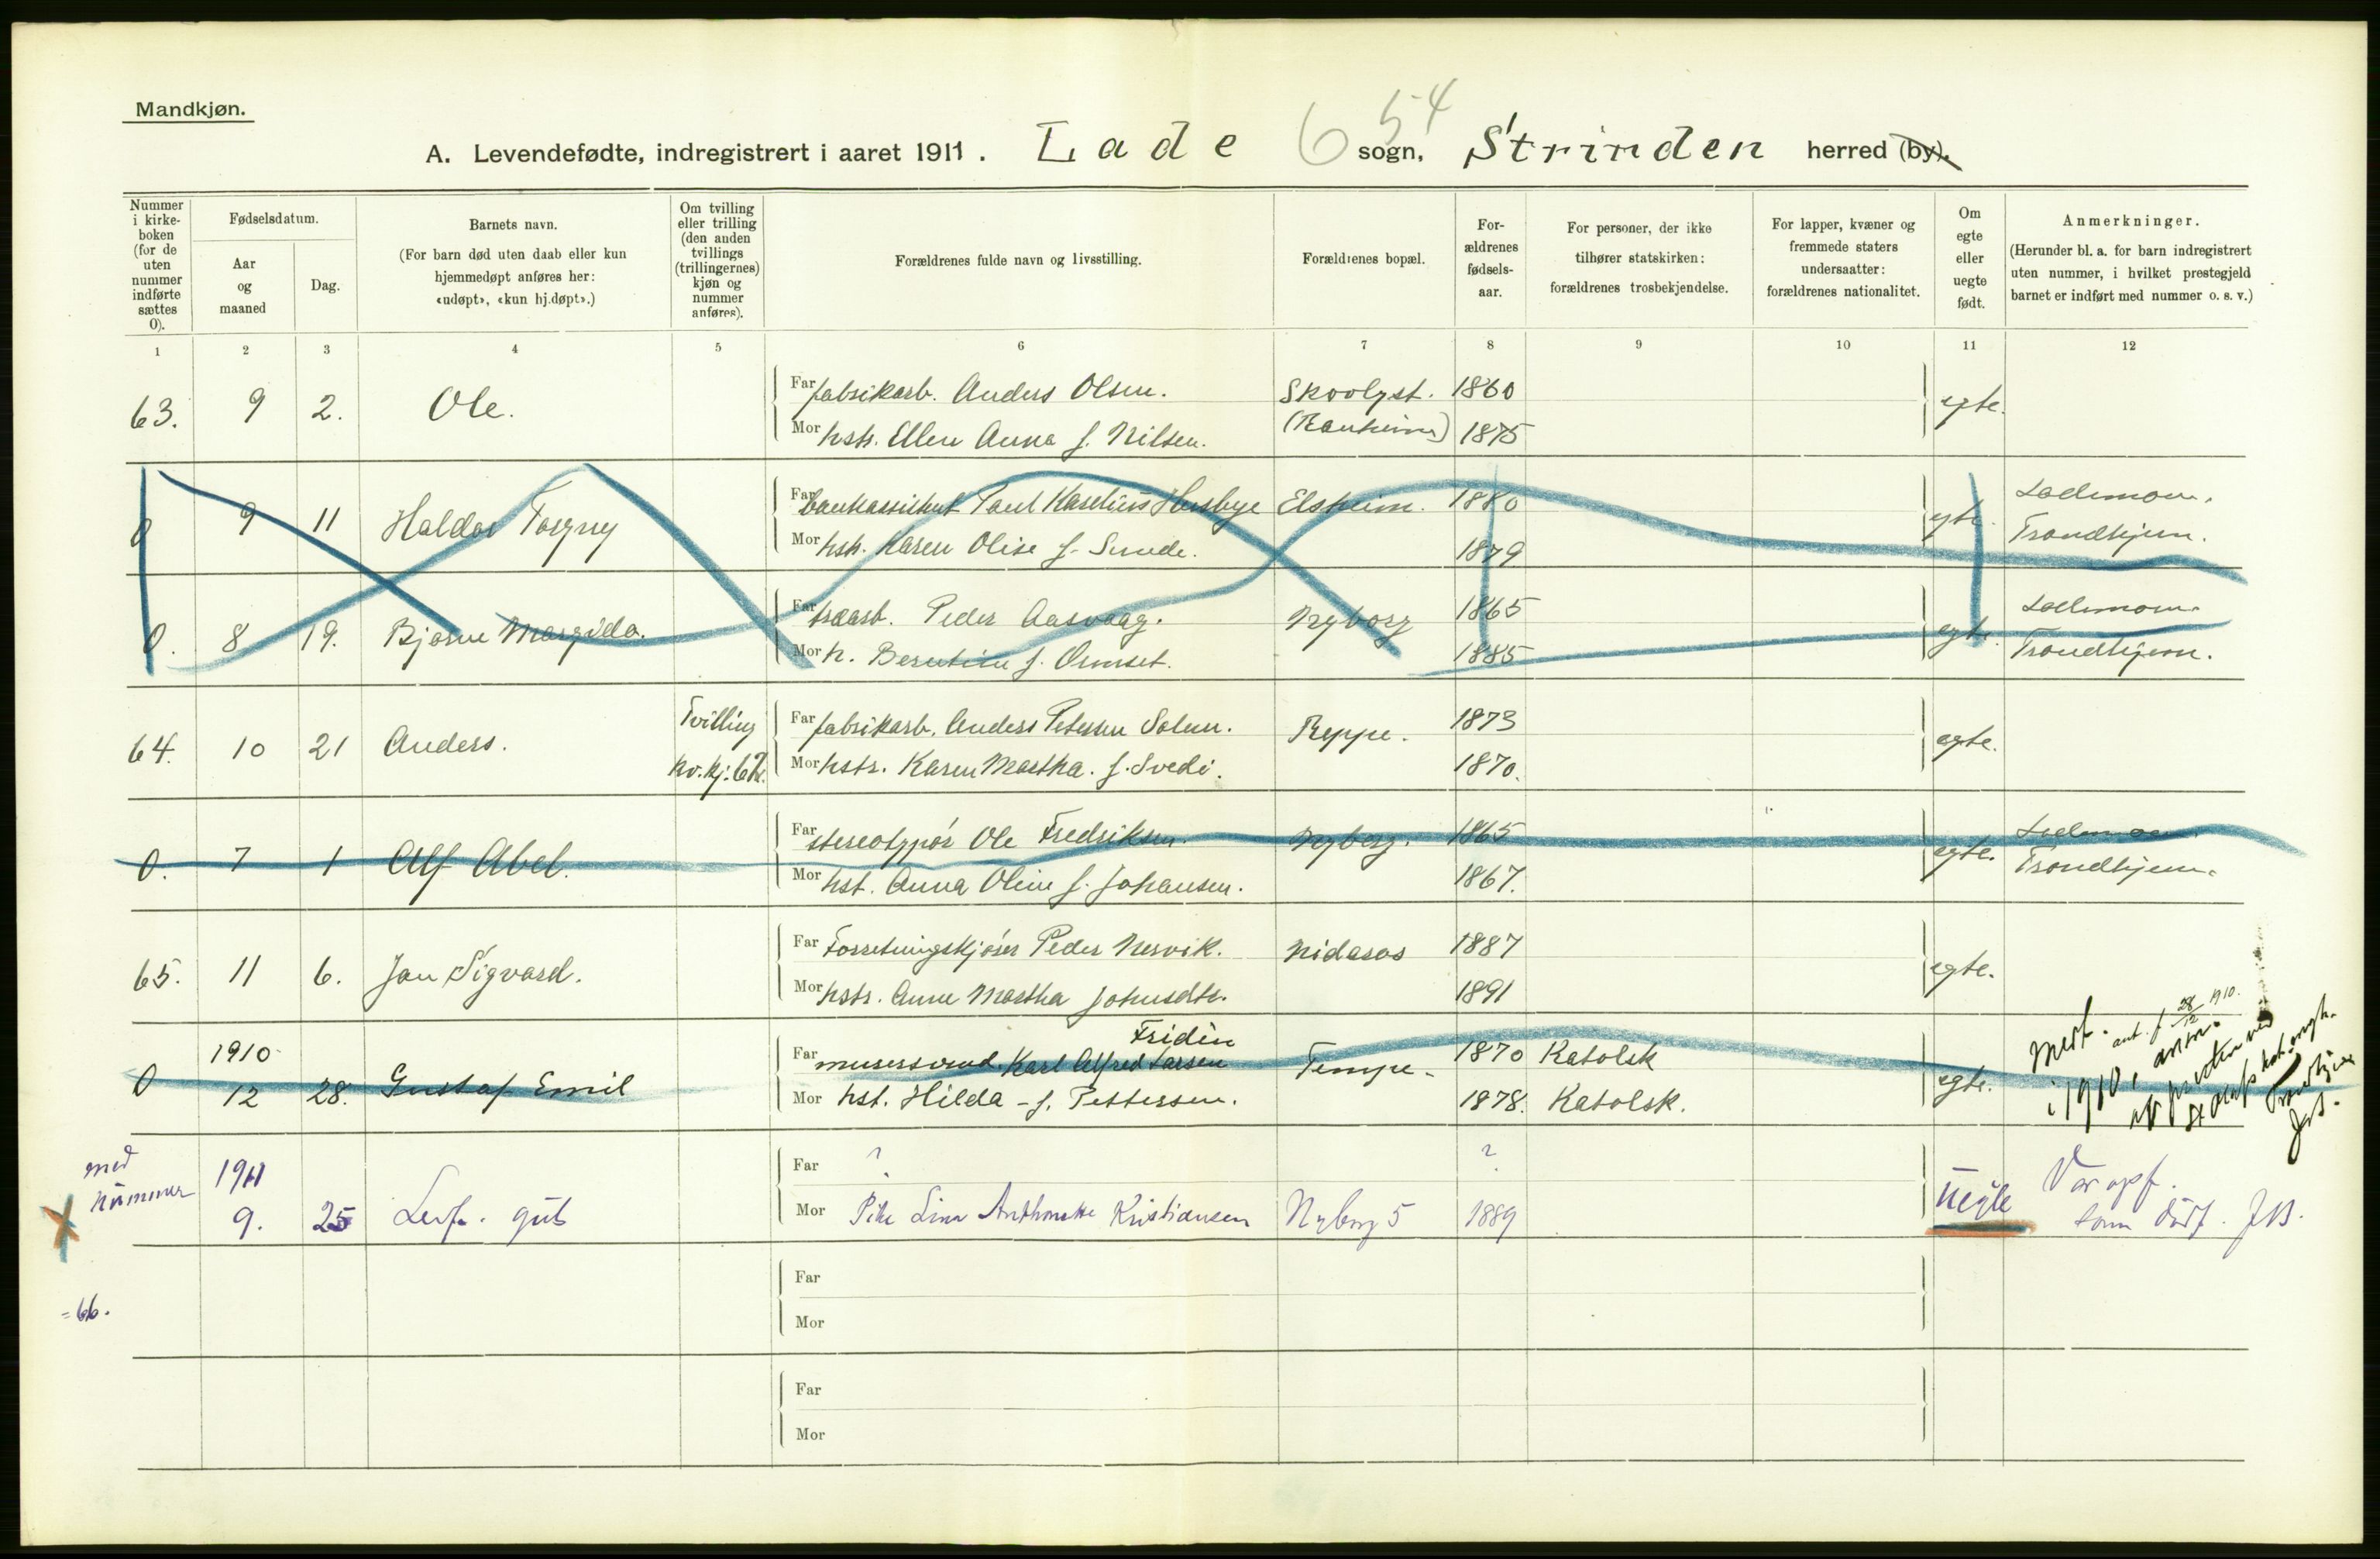 Mandkjøn.
54
6
A. Levendefødte, indregistrert i aaret 1911. Lade sogn, Strinden herred (by).
Nummer i kirke-boken (for de uten nummer indførte sættes 0).
Fødselsdatum.
Aar og maaned
Dag.
Barnets navn.
(For barn død uten daab eller kun hjemmedøpt anføres her: «udøpt», «kun hj.døpt».)
Om tvilling eller trilling (den anden tvillings (trillingernes) kjøn og nummer anføres).
Forældrenes fulde navn og livsstilling.
Forældrenes bopæl.
For-ældrenes fødsels-aar.
For personer, der ikke tilhører statskirken: forældrenes trosbekjendelse.
For lapper, kvæner og fremmede staters undersaatter: forældrenes nationalitet.
Om egte eller uegte født.
Anmerkninger.
(Herunder bl. a. for barn indregistrert uten nummer, i hvilket prestegjeld barnet er indført med nummer o. s. v.)
1 2 3 4 5 6 7 8 9 10 11 12
63. 9 2. Ole. Far fabrikarb. Anders Olsen. Skovlyst. 1860 egte.
Mor hstr. Ellen Anna f. Nilsen. (Ranheim) 1875
0 9 11 Haldor Torgny Far bankassistent Paul Kaselius Husbye Elsheim. 1880 egte. Lademoen.
Mor hstr. Karen Olise f. Sunde. 1879 Trondhjem.
0. 8 19. Bjarne Margido. Far træarb. Peder Aasvaag. Nyborg 1865 egte. Lademoen
Mor h. Berntine f. Ormset. 1885 Trondhjem.
64. 10 21 Anders. Tvilling Far fabrikarb. Anders Petersen Solem. Reppe. 1873 egte.
kv.kj. 62. Mor hstr. Karen Martha. f. Svedi. 1870.
0. 7 1 Alf Abel. Far stereotypør Ole Fredriksen. Nyborg. 1865 egte. Lademoen
Mor hst. Anna Oline f. Johansen. 1867. Trondhjem.
65. 11 6. Jan Sigvard. Far Forretningskjører Peder Nervik. Nidaros 1887 egte.
Mor hstr. Anne Martha Johnsdtr. 1891
0 1910 Fridèn
12 28. Gustaf Emil Far murersvend. Karl Alfred Larsen Tempe. 1870 Katolsk egte.
Mor hst. Hilda - f. Pettersen. 1878. Katolsk.
Medt. ant. f. 28/12 1910.
i 1910, anm.
av presten ved
St Olafs kat. mgh.
Trondhjem
med nummer 1911
9. 25 Levf. gut Far ? ? uegte Var opf.
Mor Pike Lina Anthonette Kristiansen Nyborg 5 1889 som dødf. JB.
= 66.
Far
Mor
Far
Mor